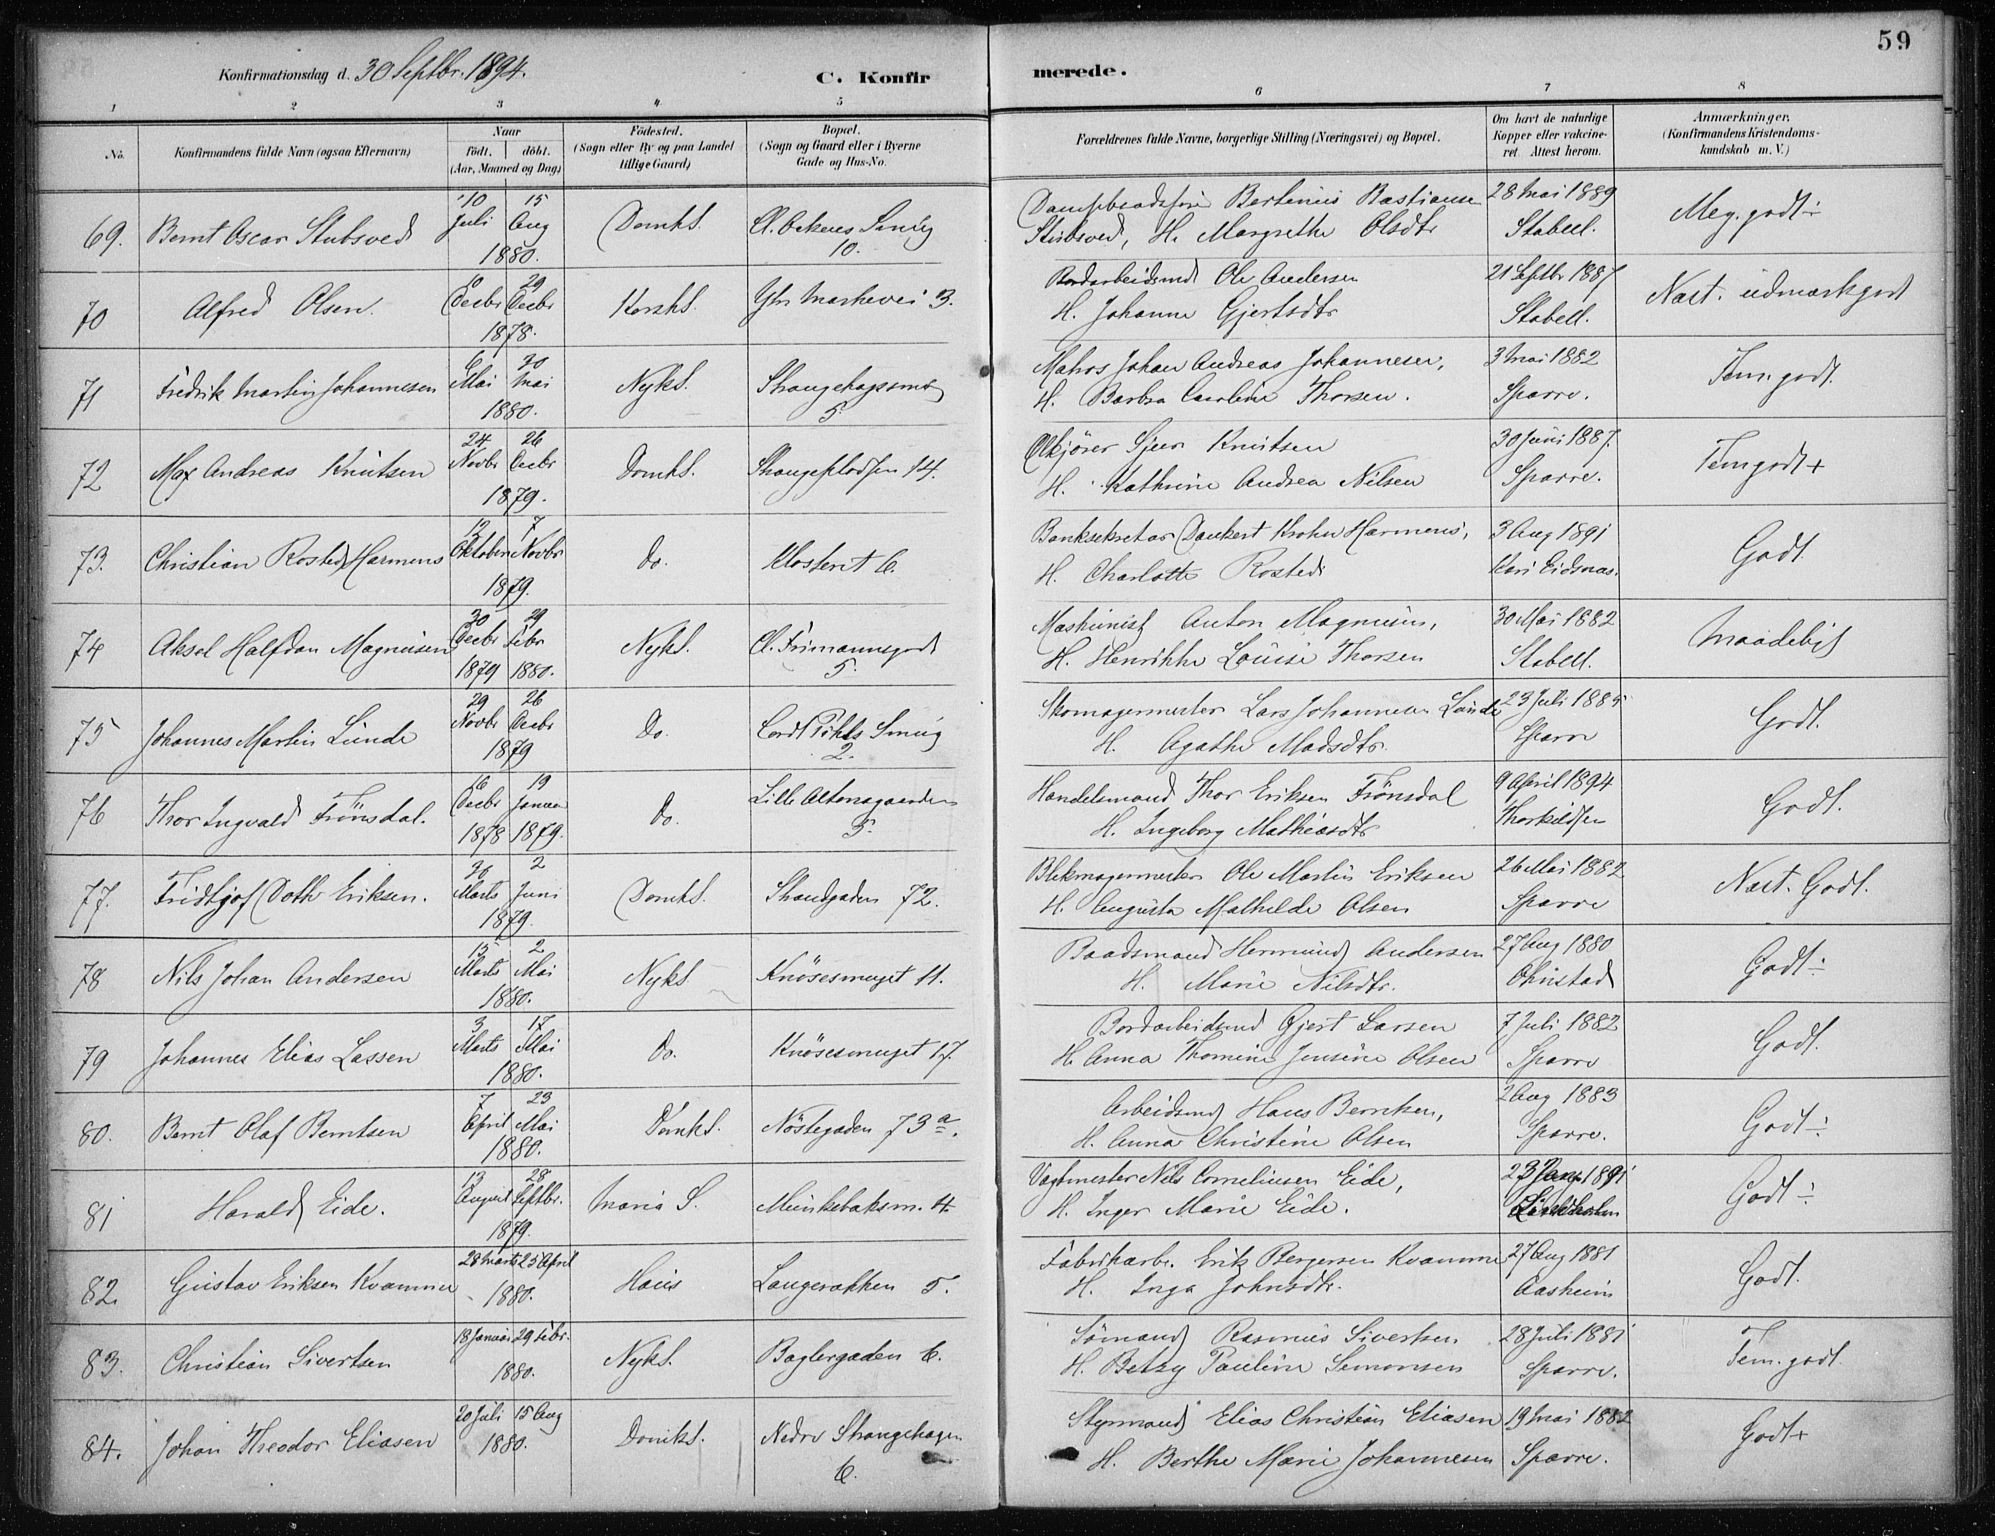 59
Konfirmationsdag d. 30 Septbr. 1894.
C. Konfirmerede.
1 2 3 4 5 6 7 8
No.
Konfirmandens fulde Navn (ogsaa Efternavn)
Naar
födt. döbt.
(Aar, Maaned og Dag)
Födested.
(Sogn eller By og paa Landet
tillige Gaard)
Bopæl.
(Sogn og Gaard eller i Byerne
Gade og Hus-No.
Forældrenes fulde Navne, borgerlige Stilling (Næringsvei) og Bopæl.
Om havt de naturlige
Kopper eller vakcine-
ret. Attest herom.
Anmærkninger.
(Konfirmandens Kristendoms-
kundskab m. V.)
69. Bernt Oscar Stubsved 10 Juli 15 Aug 1880. Domks. 10. Bertinius Bastiansen 28 Mai 1889 Meg. godt÷
Stubsved, H. Margrethe Olsdtr Stabell.
70 Alfred Olsen. 6 Decbr 29 Decbr 1878. Korsks. Ytr Markevei 3. Bordarbeidsmd Ole Andersen 21 Septbr 1887 Næst. udmærkgodt
H. Johanne Gjertsdtr Stabell.
71 Fredrik Martin Johannesen 6 Mai 30 Mai 1880. Nyks. Strangehagsmg 5 Matros Johan Andreas Johannesen, 3 Mai 1882 Tem. godt.
H. Barbra Caroline Thorsen. Sparre.
72 Max Andreas Knutsen 24 Novbr 26 Decbr 1879. Domks. 14. Ølkjörer Sjur Knutsen 30 Juni 1887. Temgodt+
H. Kathrine Andrea Nilsen Sparre.
73. Christian Rosted Harmens 12 Oktober 7 Novbr 1879. Do. Klosteret 6. Banksekretær Dankert Krohn Harmens, 3 Aug 1891 Godt.
H. Charlotte Rosted Kari Eidsnæs.
74 Aksel Halfdan Magnusen 30 Decbr 1879 29 Febr 1880. Nyks. Cl. Frimannsgade 5 Maskinist Anton Magnusen, 30 Mai 1882 Maadeligt
H. Henrikke Louise Thorsen Stabell.
75 Johannes Martin Lunde 29 Novbr 26 Decbr 1879 Do. Cordt Pihls Smug 2. Skomagermester Lars Johannesen Lunde 23 Juli 1885 Godt.
H. Agathe Madsdtr. Sparre
76 Thor Ingvald Frönsdal. 6 Decbr 1878 19 Januar 1879. Do. Lille Altonagaarden 5. Handelsmand Thor Eriksen Frönsdal 9 April 1894 Godt.
H. Ingeborg Mathiasdtr Thorkildsen
77. Fridtjof Doth Eriksen. 26 Marts 2 Juni 1879. Domks. Strandgaden 72. Blikmagermester Ole Martin Eriksen 26 Mai 1882 Næst. Godt.
H. Augusta Mathilde Olsen Sparre
78 Nils Johan Andersen 15 Marts 2 Mai 1880. Nyks. Knösesmuget 11. Baadsmand Hermund Andersen 27 Aug 1880 Godt÷
H. Marie Nilsdtr. Ohnstad
79 Johannes Elias Lassen 3 Marts 17 Mai 1880. Do. Knösesmuget 17. Bordarbeidsmd Gjert Larsen 7 Juli 1882 Godt.
H. Anna Thomine Jensine Olsen Sparre
80. Bernt Olaf Berntsen 7 April 23 Mai 1880. Domks. Nöstegaden 73 a. Arbeidsmd Hans Berntsen, 2 Aug 1883 Godt÷
H. Anna Christine Olsen Sparre.
81 Harald Eide. 13 August 28 Septbr. 1879. Maria S. Munkebæksm. 4 Vagtmester Nils Corneliusen Eide, 1891 Godt÷
H. Inger Marie Eide.
82. Gustav Eriksen Kvamme 28 Marts 25 April 1880. Haus Langerækken 5. Fabrikarb. Erik Bergersen Kvamme 27 Aug 1881 Godt.
H. Inga Johnsdtr. Aasheim
83. Christian Sivertsen 18 Januar 29 Febr. 1880. Nyks. Baglergaden 6. Sömand Rasmus Sivertsen 28 Juli 1881 Tem. godt.
H. Betzy Pauline Simonsen Sparre.
84. Johan Theodor Eliasen 20 Juli 15 Aug 1880. Domks. Nedre Strangehagen 6. Styrmand Elias Christian Eliasen 19 Mai 1882 Godt+
H. Berthe Marie Johannesen Sparre.